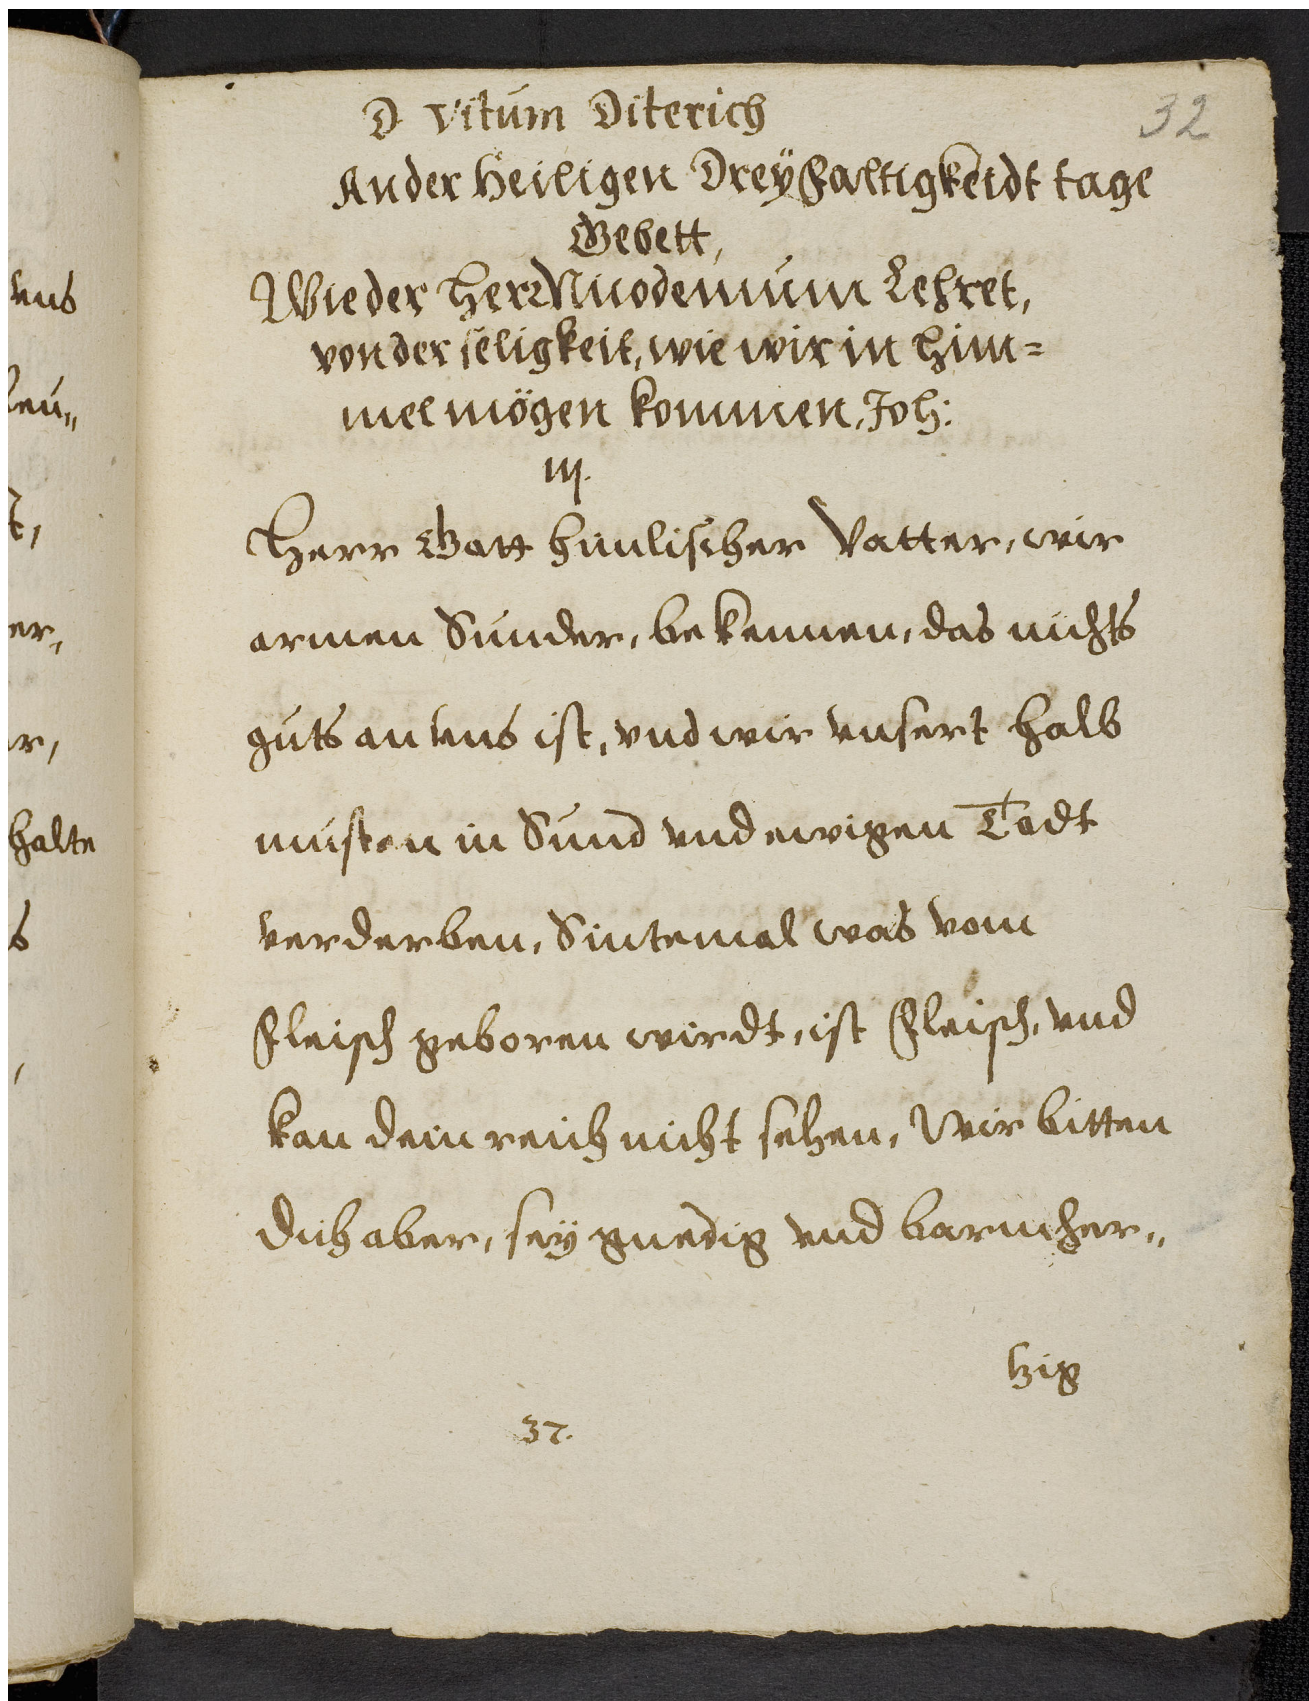 32
D Vitum Diterich
An der Heiligen Dreyfaltigkeidt tage
Gebett,
Wie der Herr Nicodemum Lehret,
von der seligkeit, wie wir in him=
mel mögen kommen, Joh:
iij.
Herr Gott himlischer Vatter, wir
armen Sunder, bekennen, das nichts
guts an vns ist, vnd wir vnsert halb
musten in Sund vnd ewigen Todt
verderben, Sintemal was vom
fleisch geboren wirdt, ist fleisch, vnd
kan dein reich nicht sehen, Wir bitten
dich aber, sey gnedig vnd barmher„
tzig
37.
vns
er,
r,
halte